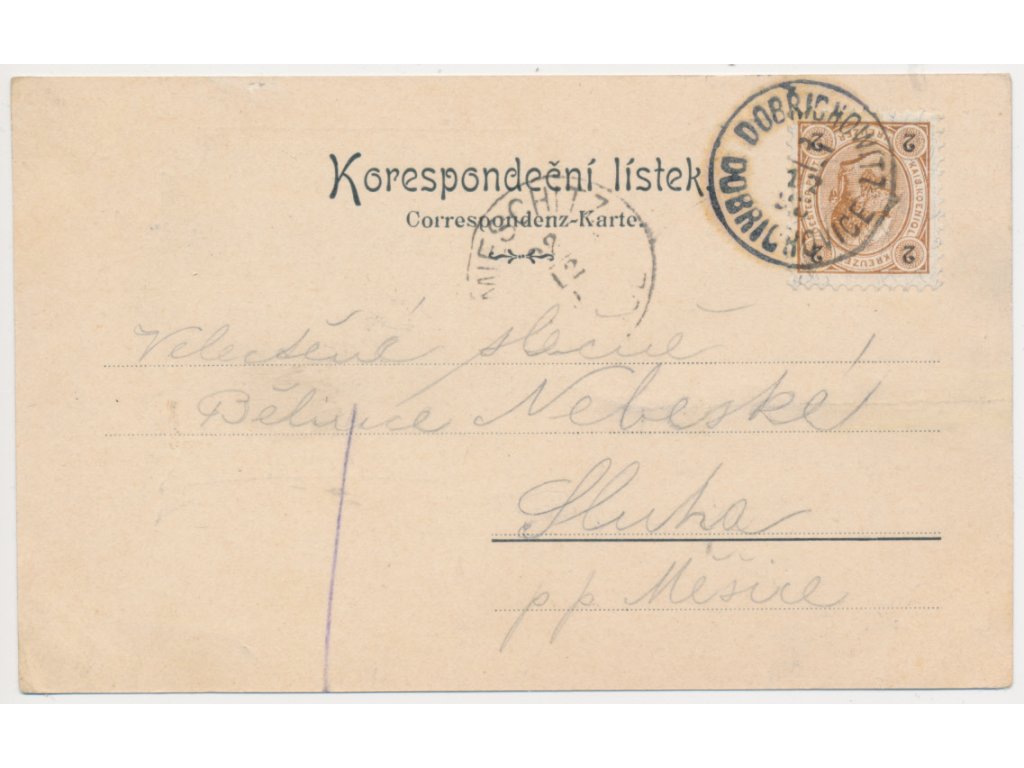 Korespondeční lístek.
Correspondenz-Karte.
DOBŘICHOWITZ
DOBŘICHOVICE
MIESCHITZ
2 2
2 2
KREUZER
KAIS.KOENIGL
Velectěné slečně
Bělince Nebeské
Sluha
pp Měšice